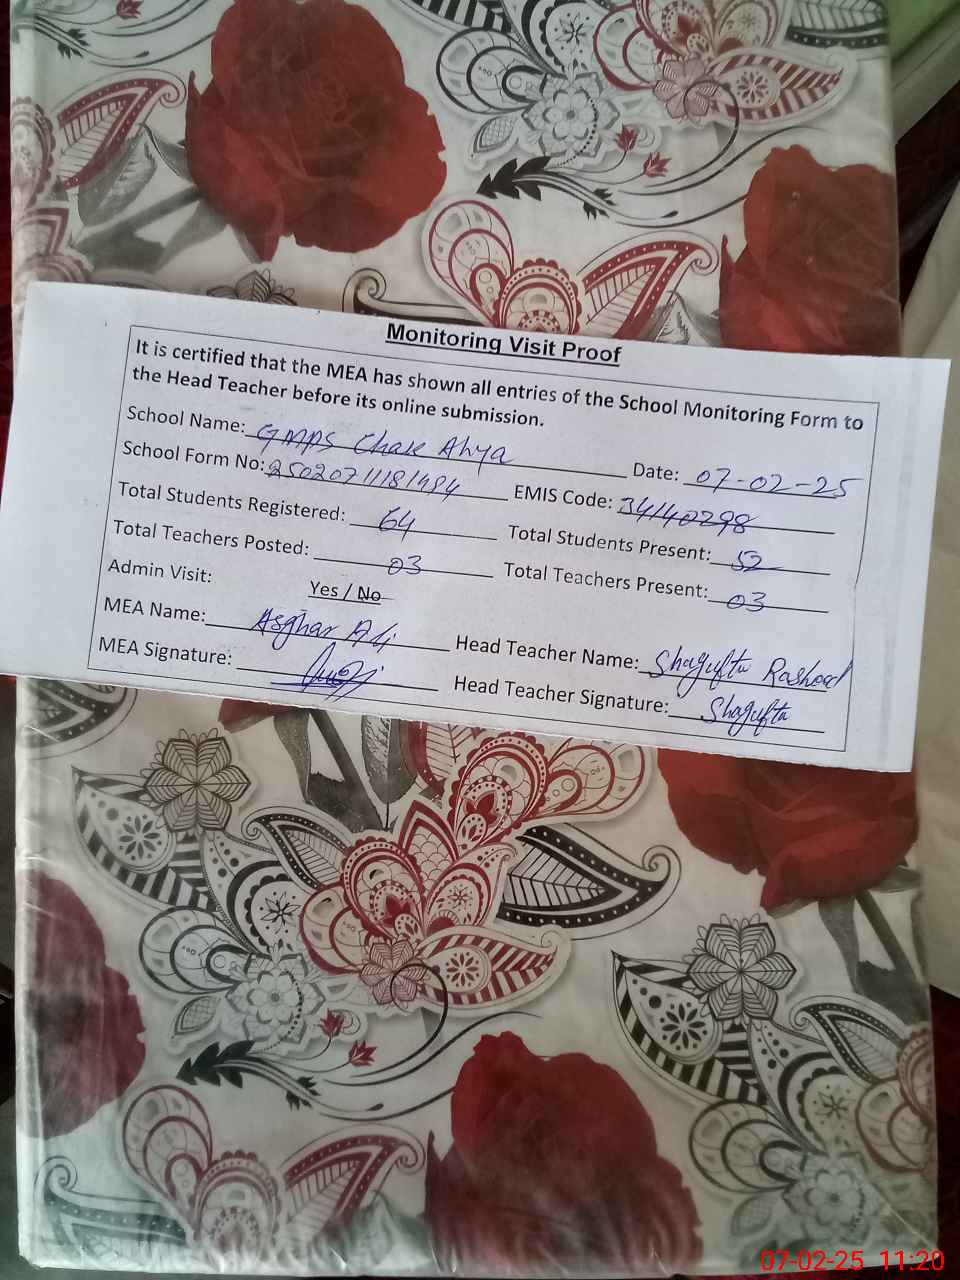 Monitoring Visit Proof
It is certified that the MEA has shown all entries of the School Monitoring Form to
the Head Teacher before its online submission.
School Name: GMPS Chak Ahya Date: 07-02-25
School Form No: 250207111181494 EMIS Code: 34140298
Total Students Registered: 64 Total Students Present: 52
Total Teachers Posted: 03 Total Teachers Present: 03
Admin Visit: Yes / No
MEA Name: Asghar Ali Head Teacher Name: Shagufta Rasheed
MEA Signature: Head Teacher Signature: Shagufta
07-02-25 11:20